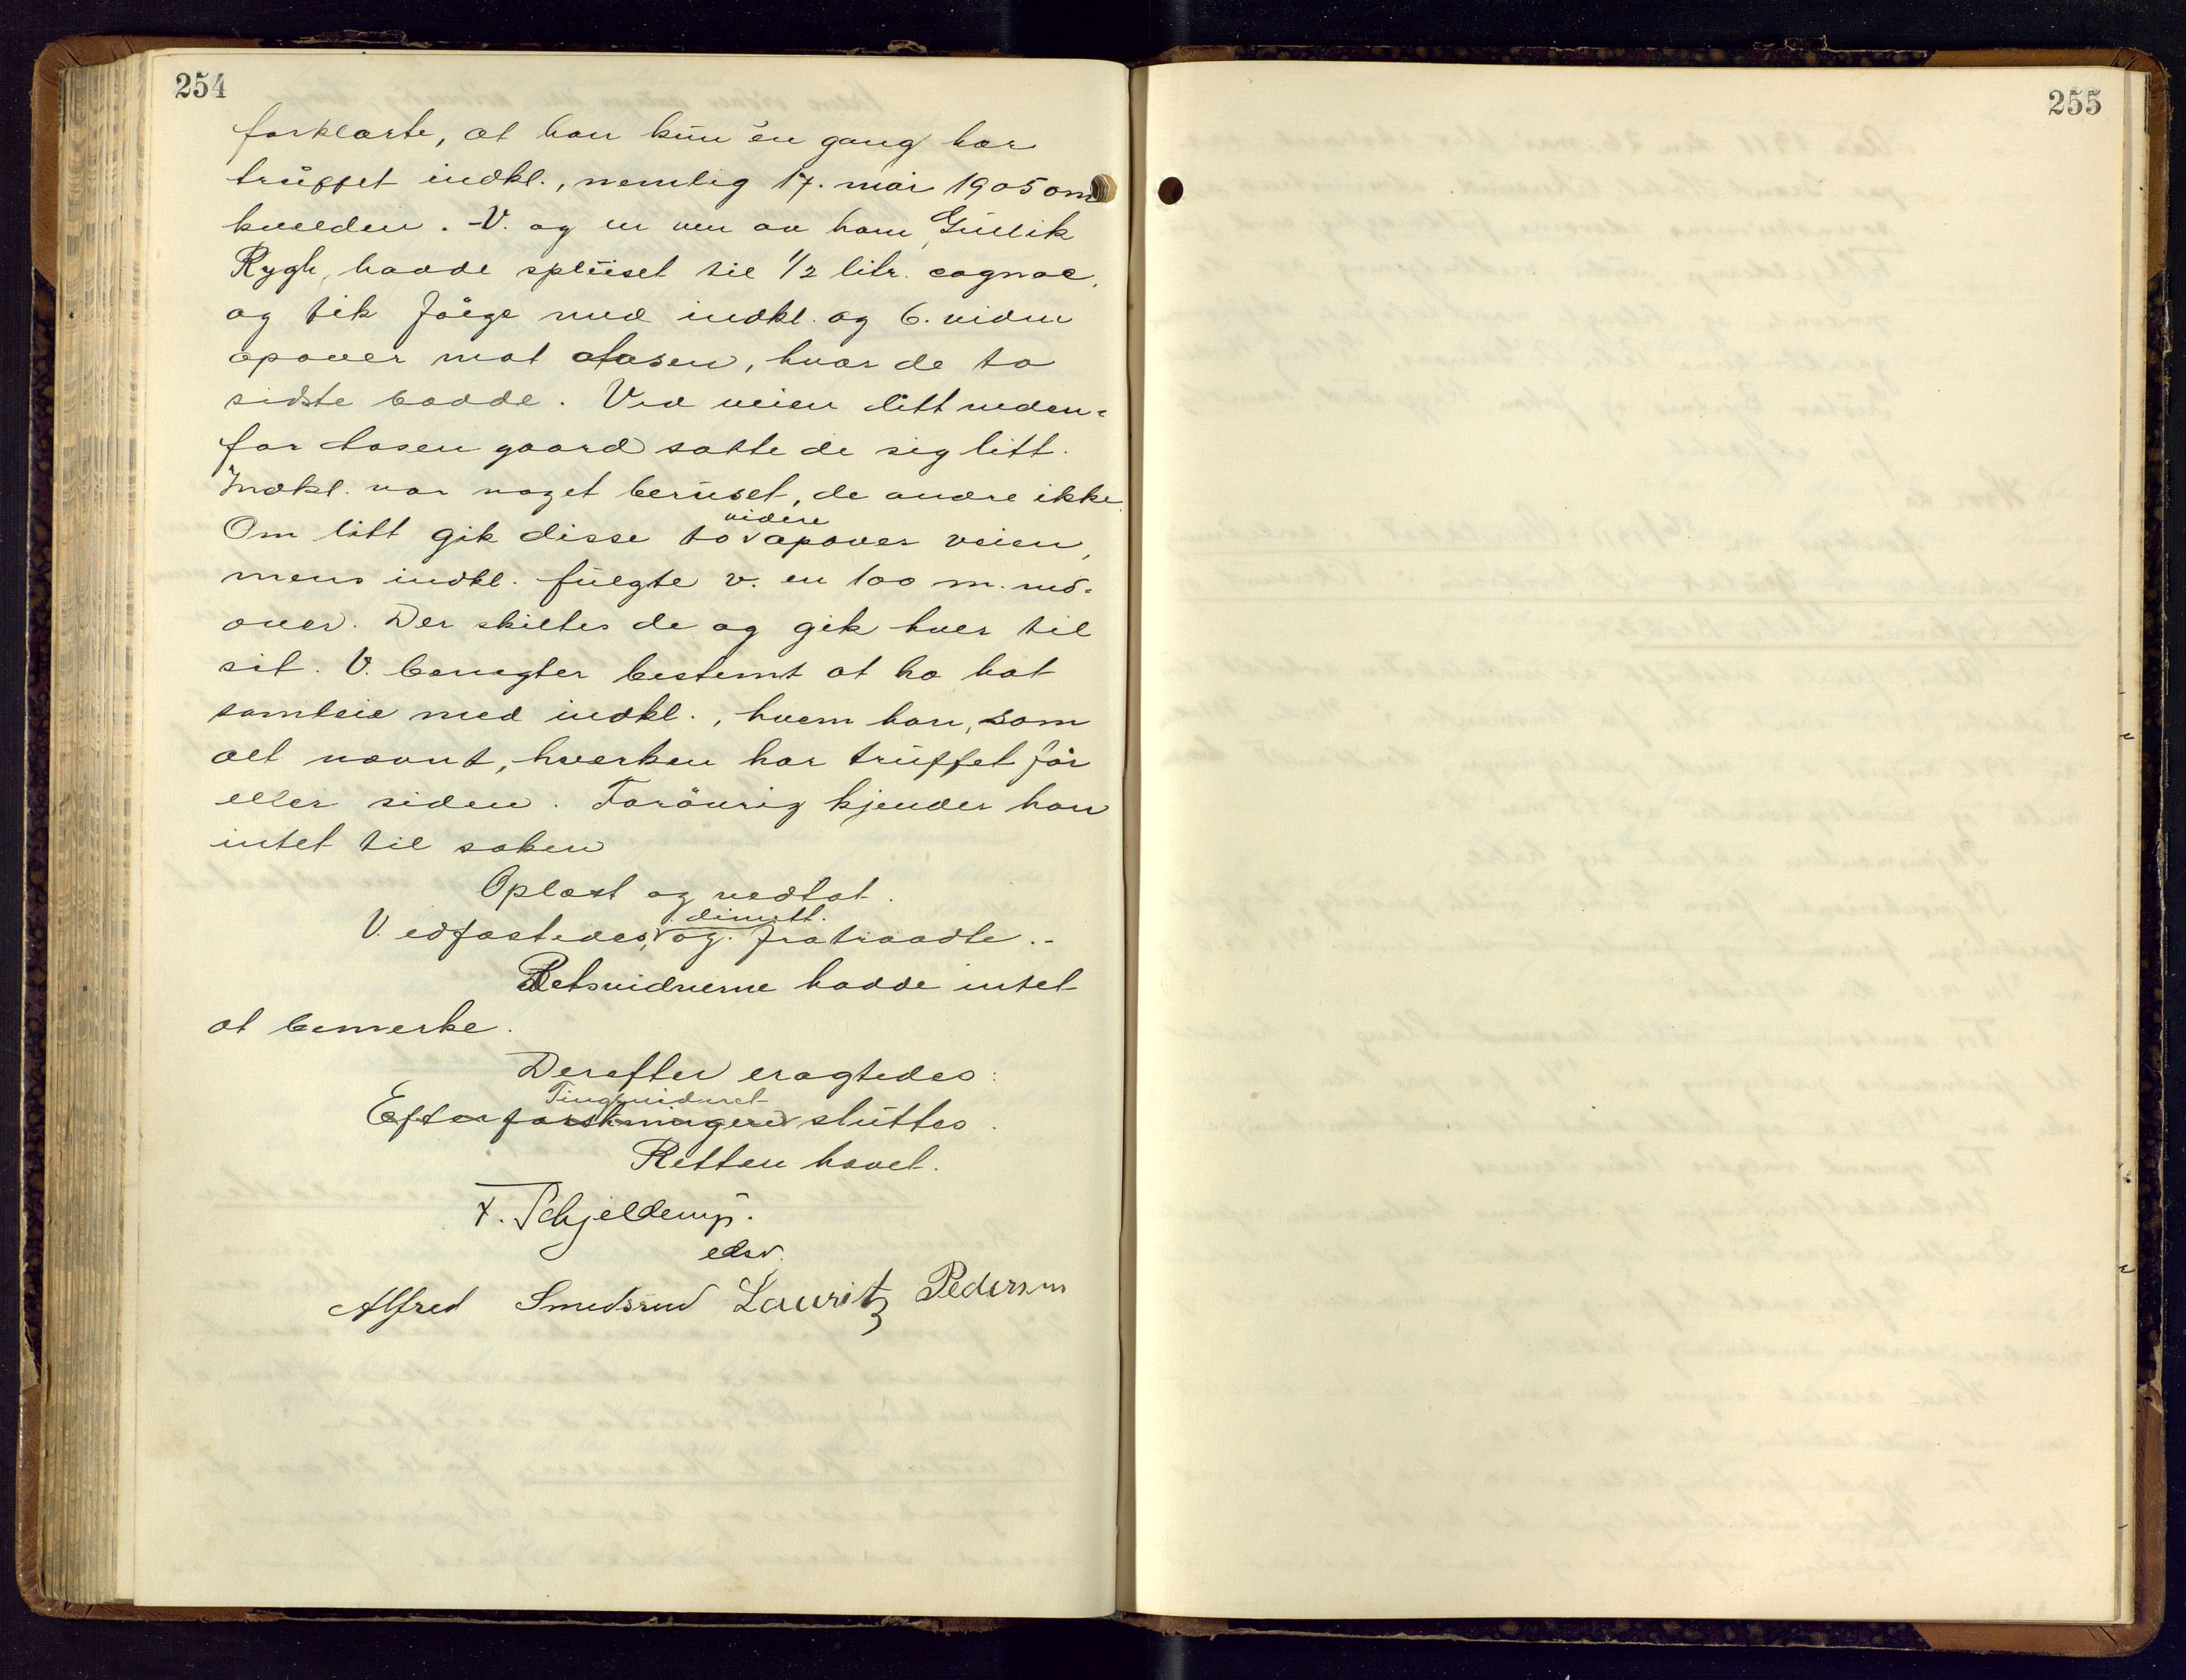 254
forklarte, at han kun én gang har
truffet indkl., nemlig 17. mai 1905 om
kvelden. - V. og en ven av ham, Gullik
Rygh, hadde spleiset til 1/2 litr. cognac,
og fik følge med indkl. og 6. vidne
opover mot Aasen, hvor de to
sidste bodde. Ved veien litt neden-
for Aasen gaard satte de sig litt.
Indkl. var noget beruset, de andre ikke.
Om litt gik disse to videre opover veien,
mens indkl. fulgte v. en 100 m. ned-
over. Der skiltes de og gik hver til
sit. V. benegter bestemt at ha hat
samleie med indkl., hvem han, som
alt nævnt, hverken har truffet før
eller siden. Forøvrig kjender han
intet til saken
Oplæst og vedtat.
V. edfæstedes, dimitt. og fratraadte. -
Retsvidnerne hadde intet
at bemerke.
Derefter eragtedes:
Efterforskningen Tingsvidnet sluttes.
Retten hævet.
F. Schjelderup.
edsv.
Alfred Smedsrud Lauritz Pedersen
255